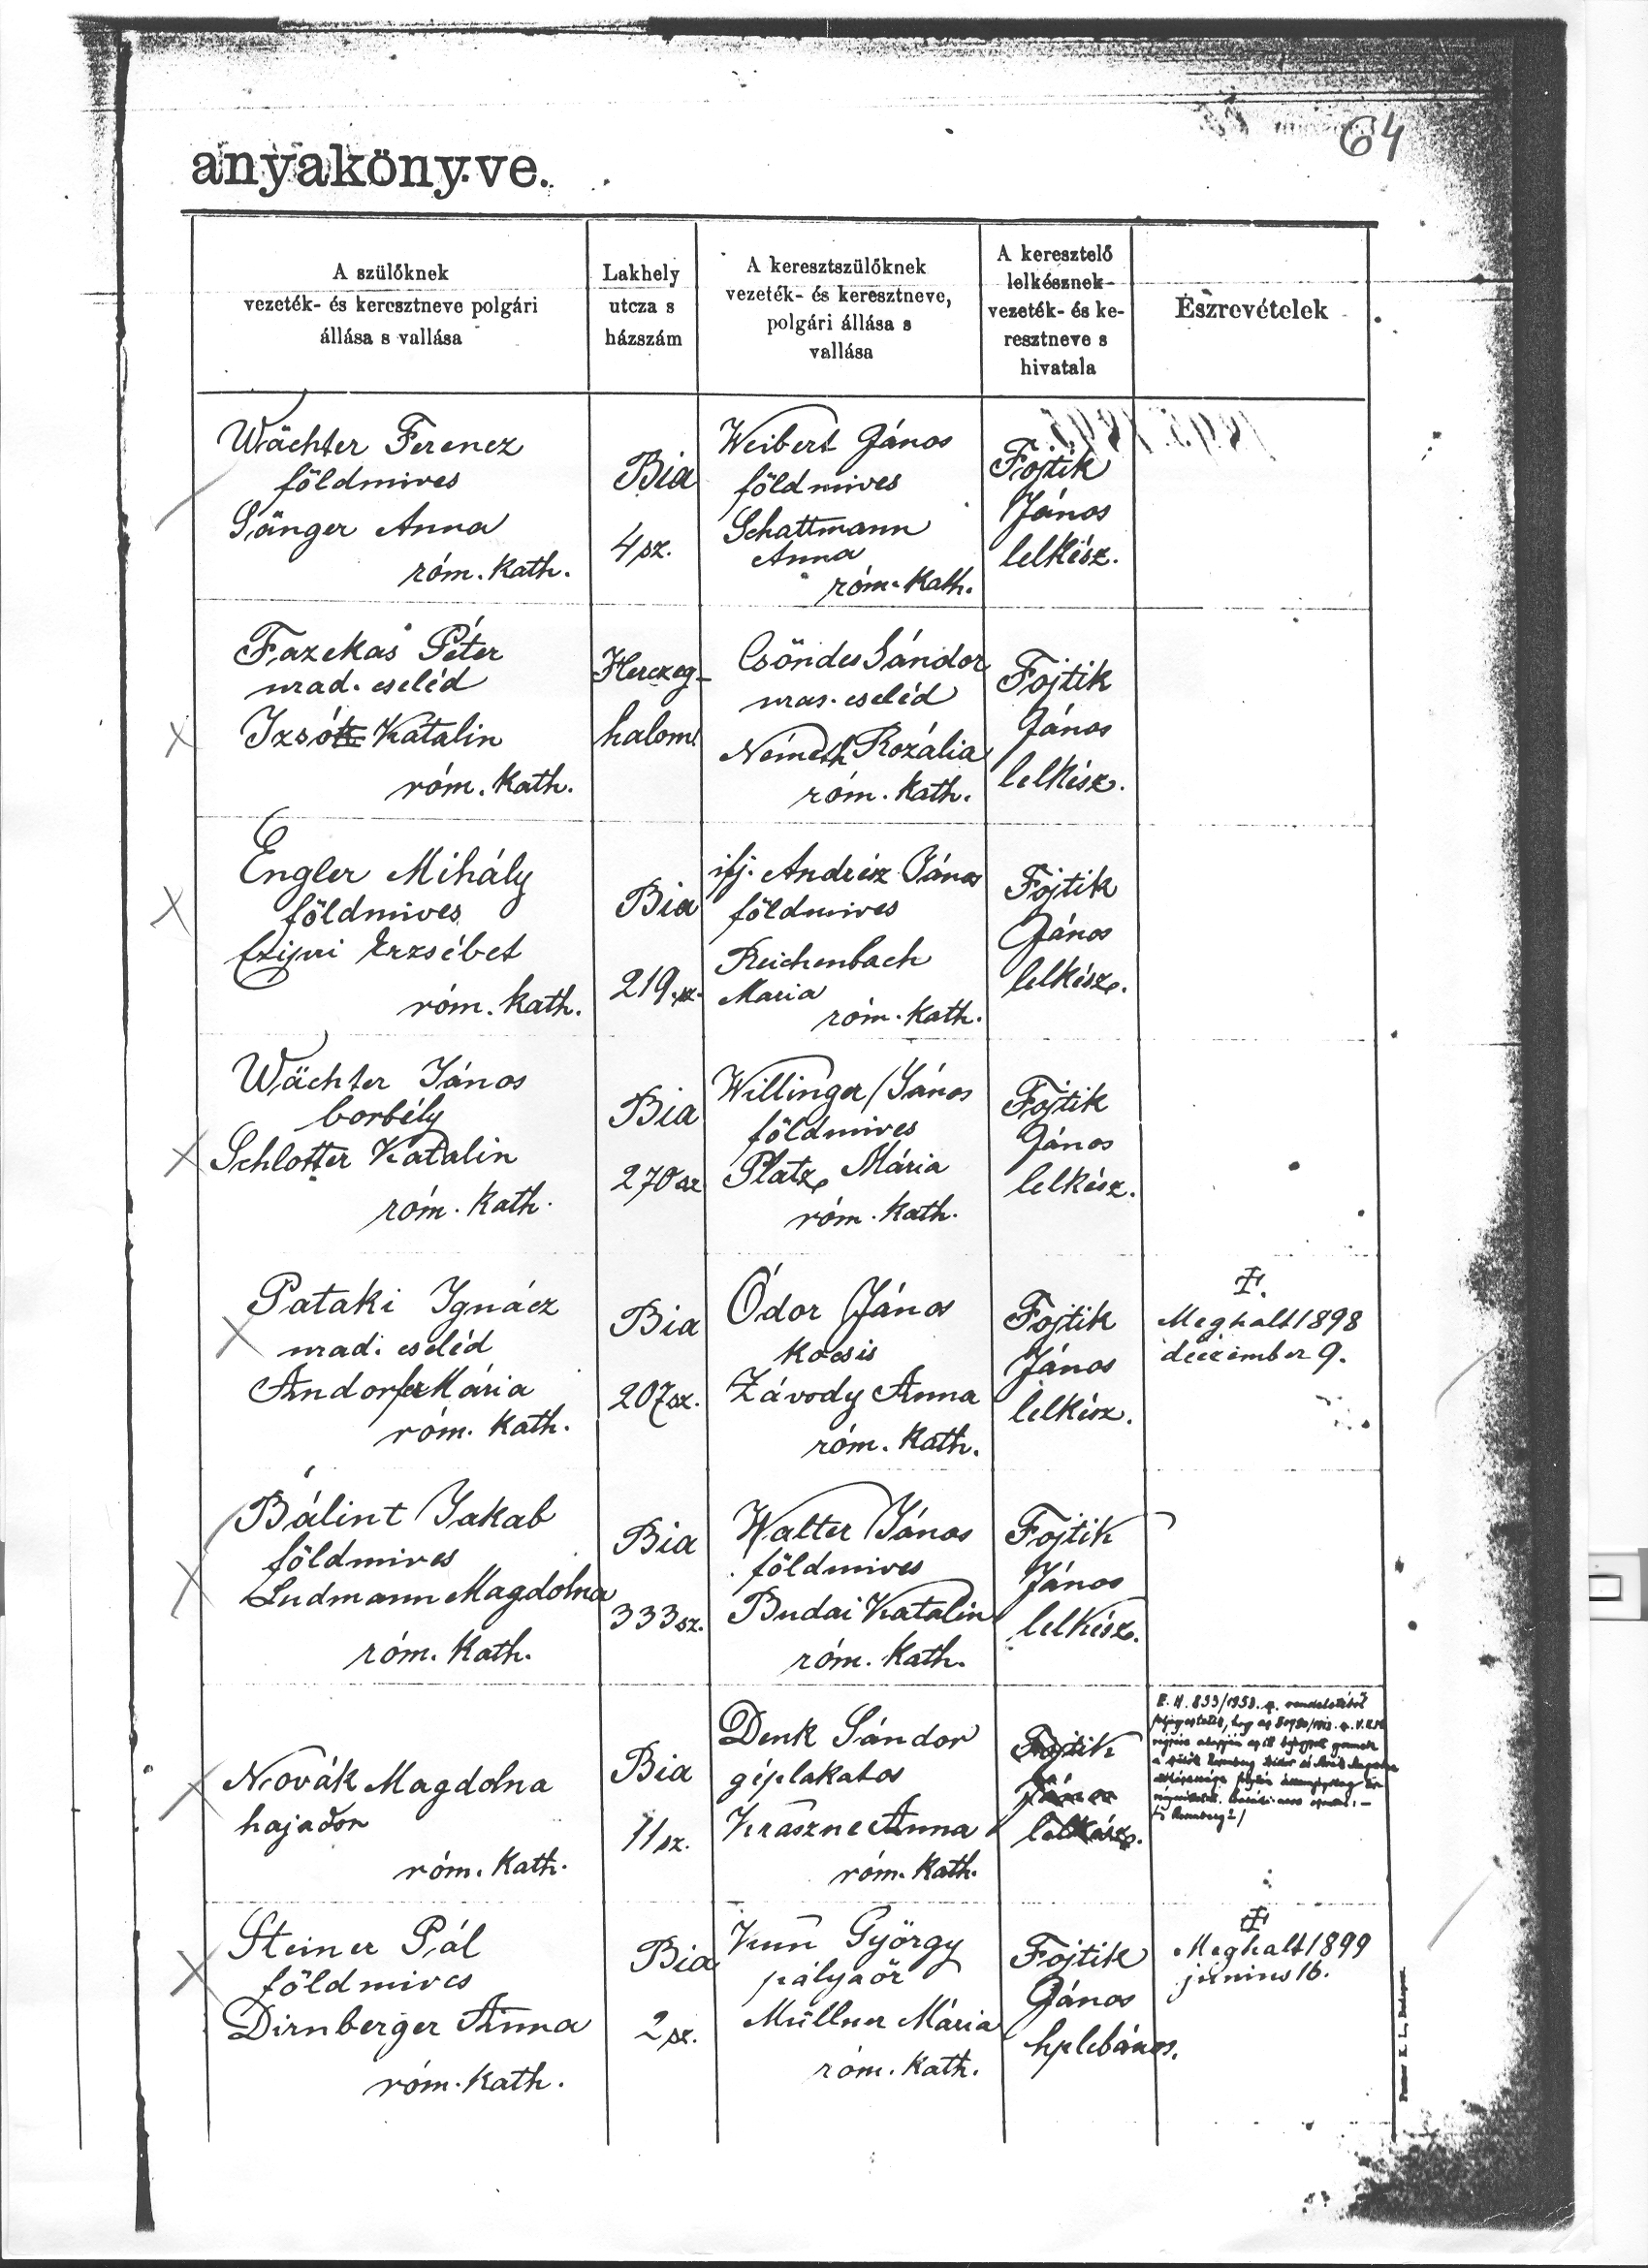 64
anyakönyve.
A szülőknek
vezeték- és keresztneve polgári
állása s vallása
Lakhely
utcza s
házszám
A keresztszülőknek
vezeték- és keresztneve,
polgári állása s
vallása
A keresztelő
lelkésznek
vezeték- és ke-
resztneve s
hivatala
Észrevételek
Wächter Ferencz
földmives
Sänger Anna
róm. kath.
Bia
4 sz.
Weibert János
földmives
Schattmann
Anna
róm. kath.
Fojtik
János
lelkész.
Fazekas Péter
urad. cseléd
Izsó Katalin
róm. kath.
Herczeg-
halom
Csöndes Sándor
uras. cseléd
Németh Rozália
róm. kath.
Fojtik
János
lelkész.
Engler Mihály
földmives
Erzsébet
róm. kath.
Bia
219. sz.
ifj. András János
földmives
Reichenbach
Maria
róm. kath.
Fojtik
János
lelkész.
Wächter János
borbély
Schlotter Katalin
róm. kath.
Bia
270 sz
Willinger János
földmives
Platz Mária
róm. kath.
Fojtik
János
lelkész.
Pataki Ignácz
urad. cseléd
Andorfer Mária
róm. kath.
Bia
207 sz.
Ódor János
kocsis
Závody Anna
róm. kath.
Fojtik
János
lelkész.
Meghalt 1898
deczember 9.
Bálint Jakab
földmives
Ludmann Magdolna
róm. kath.
Bia
333 sz.
Walter János
földmives
Budai Katalin
róm. kath.
Fojtik
János
lelkész.
Novák Magdolna
hajadon
róm. kath.
Bia
11 sz.
Denk Sándor
géplakatos
Kraszne Anna
róm. kath.
Fojtik
János
lelkész.
Steiner Pál
földmives
Dirnberger Anna
róm. kath.
Bia
2 sz.
Kun György
pályaőr
Müllner Mária
róm. kath.
Fojtik
János
hplebános.
Meghalt 1899
junius 16.